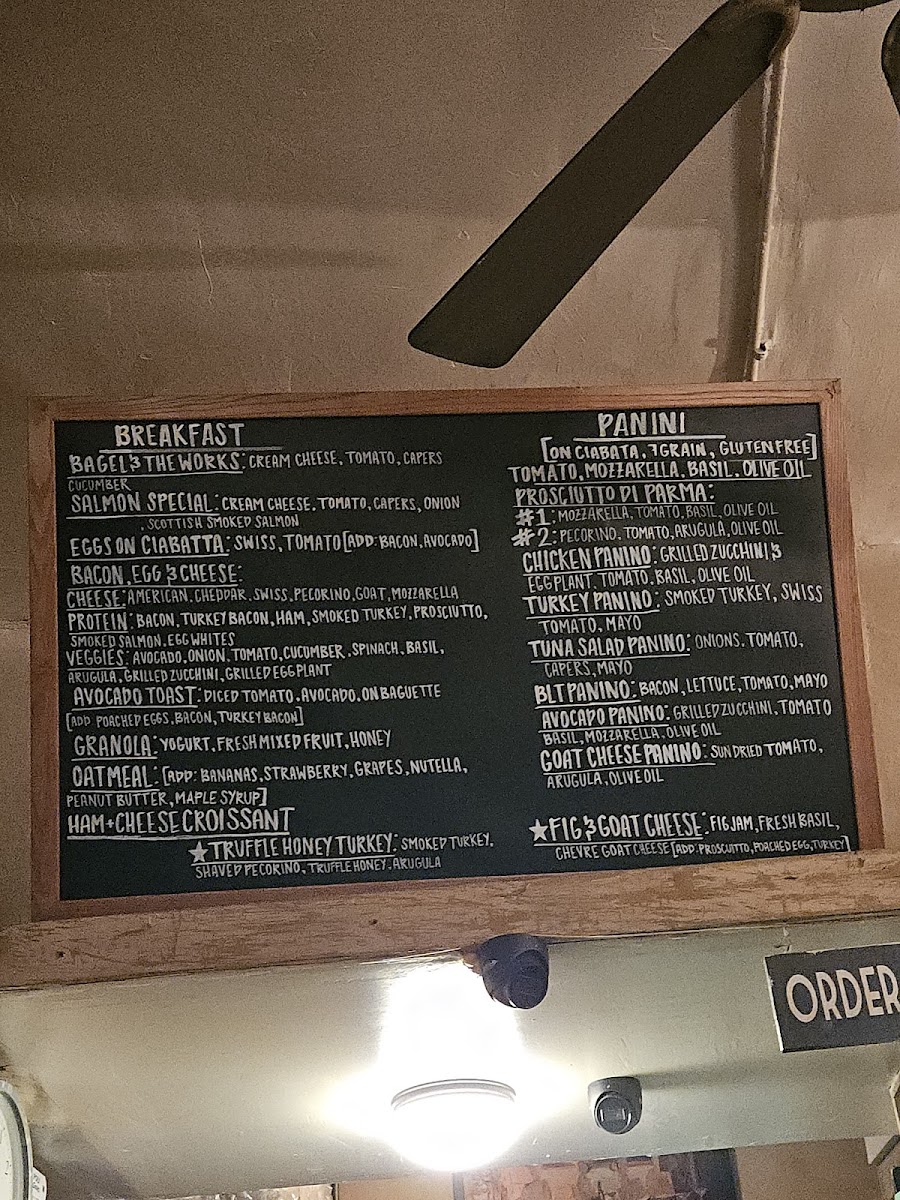 BREAKFAST
BAGEL & THE WORKS: CREAM CHEESE, TOMATO, CAPERS
CUCUMBER
SALMON SPECIAL: CREAM CHEESE, TOMATO, CAPERS, ONION
, SCOTTISH SMOKED SALMON
EGGS ON CIABATTA: SWISS, TOMATO [ADD: BACON, AVOCADO]
BACON, EGG & CHEESE:
CHEESE: AMERICAN, CHEDDAR, SWISS, PECORINO, GOAT, MOZZARELLA
PROTEIN: BACON, TURKEY BACON, HAM, SMOKED TURKEY, PROSCIUTTO,
SMOKED SALMON, EGG WHITES
VEGGIES: AVOCADO, ONION, TOMATO, CUCUMBER, SPINACH, BASIL,
ARUGULA, GRILLED ZUCCHINI, GRILLED EGGPLANT
AVOCADO TOAST: DICED TOMATO, AVOCADO, ON BAGUETTE
[ADD POACHED EGGS, BACON, TURKEY BACON]
GRANOLA: YOGURT, FRESH MIXED FRUIT, HONEY
OATMEAL: [ADD: BANANAS, STRAWBERRY, GRAPES, NUTELLA,
PEANUT BUTTER, MAPLE SYRUP]
HAM + CHEESE CROISSANT
★ TRUFFLE HONEY TURKEY: SMOKED TURKEY,
SHAVED PECORINO, TRUFFLE HONEY, ARUGULA
PANINI
[ON CIABATA, 7 GRAIN, GLUTEN FREE]
TOMATO, MOZZARELLA, BASIL, OLIVE OIL
PROSCIUTTO DI PARMA:
#1: MOZZARELLA, TOMATO, BASIL, OLIVE OIL
#2: PECORINO, TOMATO, ARUGULA, OLIVE OIL
CHICKEN PANINO: GRILLED ZUCCHINI &
EGGPLANT, TOMATO, BASIL, OLIVE OIL
TURKEY PANINO: SMOKED TURKEY, SWISS
TOMATO, MAYO
TUNA SALAD PANINO: ONIONS, TOMATO,
CAPERS, MAYO
BLT PANINO: BACON, LETTUCE, TOMATO, MAYO
AVOCADO PANINO: GRILLED ZUCCHINI, TOMATO
BASIL, MOZZARELLA, OLIVE OIL
GOAT CHEESE PANINO: SUN DRIED TOMATO,
ARUGULA, OLIVE OIL
★ FIG & GOAT CHEESE: FIG JAM, FRESH BASIL,
CHEVRE GOAT CHEESE [ADD: PROSCUITTO, POACHED EGG, TURKEY]
ORDER